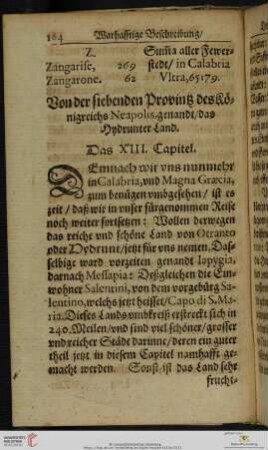 164 Warhafftige Beschreibung/
Z. Suma aller Fewer-
Zangarise, 269 stedt/ in Calabria
Zangarone. 62 Vltra, 65179.
Von der siebenden Provintz des Kö-
nigreichs Neapolis genandt/das
Hydrunter Land.
Das XIII. Capitel.
DEmnach wir vns nunmehr
in Calabria, vnd Magna Græcia,
zum benügen vmbgesehen/ ist es
zeit/ daß wir in vnser fürgenommen Reise
noch weiter fortsetzen: Wollen derwegen
das reiche vnd schöne Land von Otranto
oder Hydrunt/jetzt für vns nemen. Das-
selbige ward vorzeiten genandt Iapygia,
darnach Messapia: Deßgleichen die Ein-
wohner Salentini, von dem vorgebürg Sa-
lentino, welchs jetzt heisset/Capo di S. Ma-
ria. Dieses Lands vmbkreiß erstreckt sich in
240. Meilen/vnd sind viel schöner/grosser
vnd reicher Städt darinne/deren ein guter
theil jetzt in diesem Capitel namhafft ge-
macht werden. Sonst ist das Land sehr
frucht-
UNIVERSITÄTS-
BIBLIOTHEK
HEIDELBERG